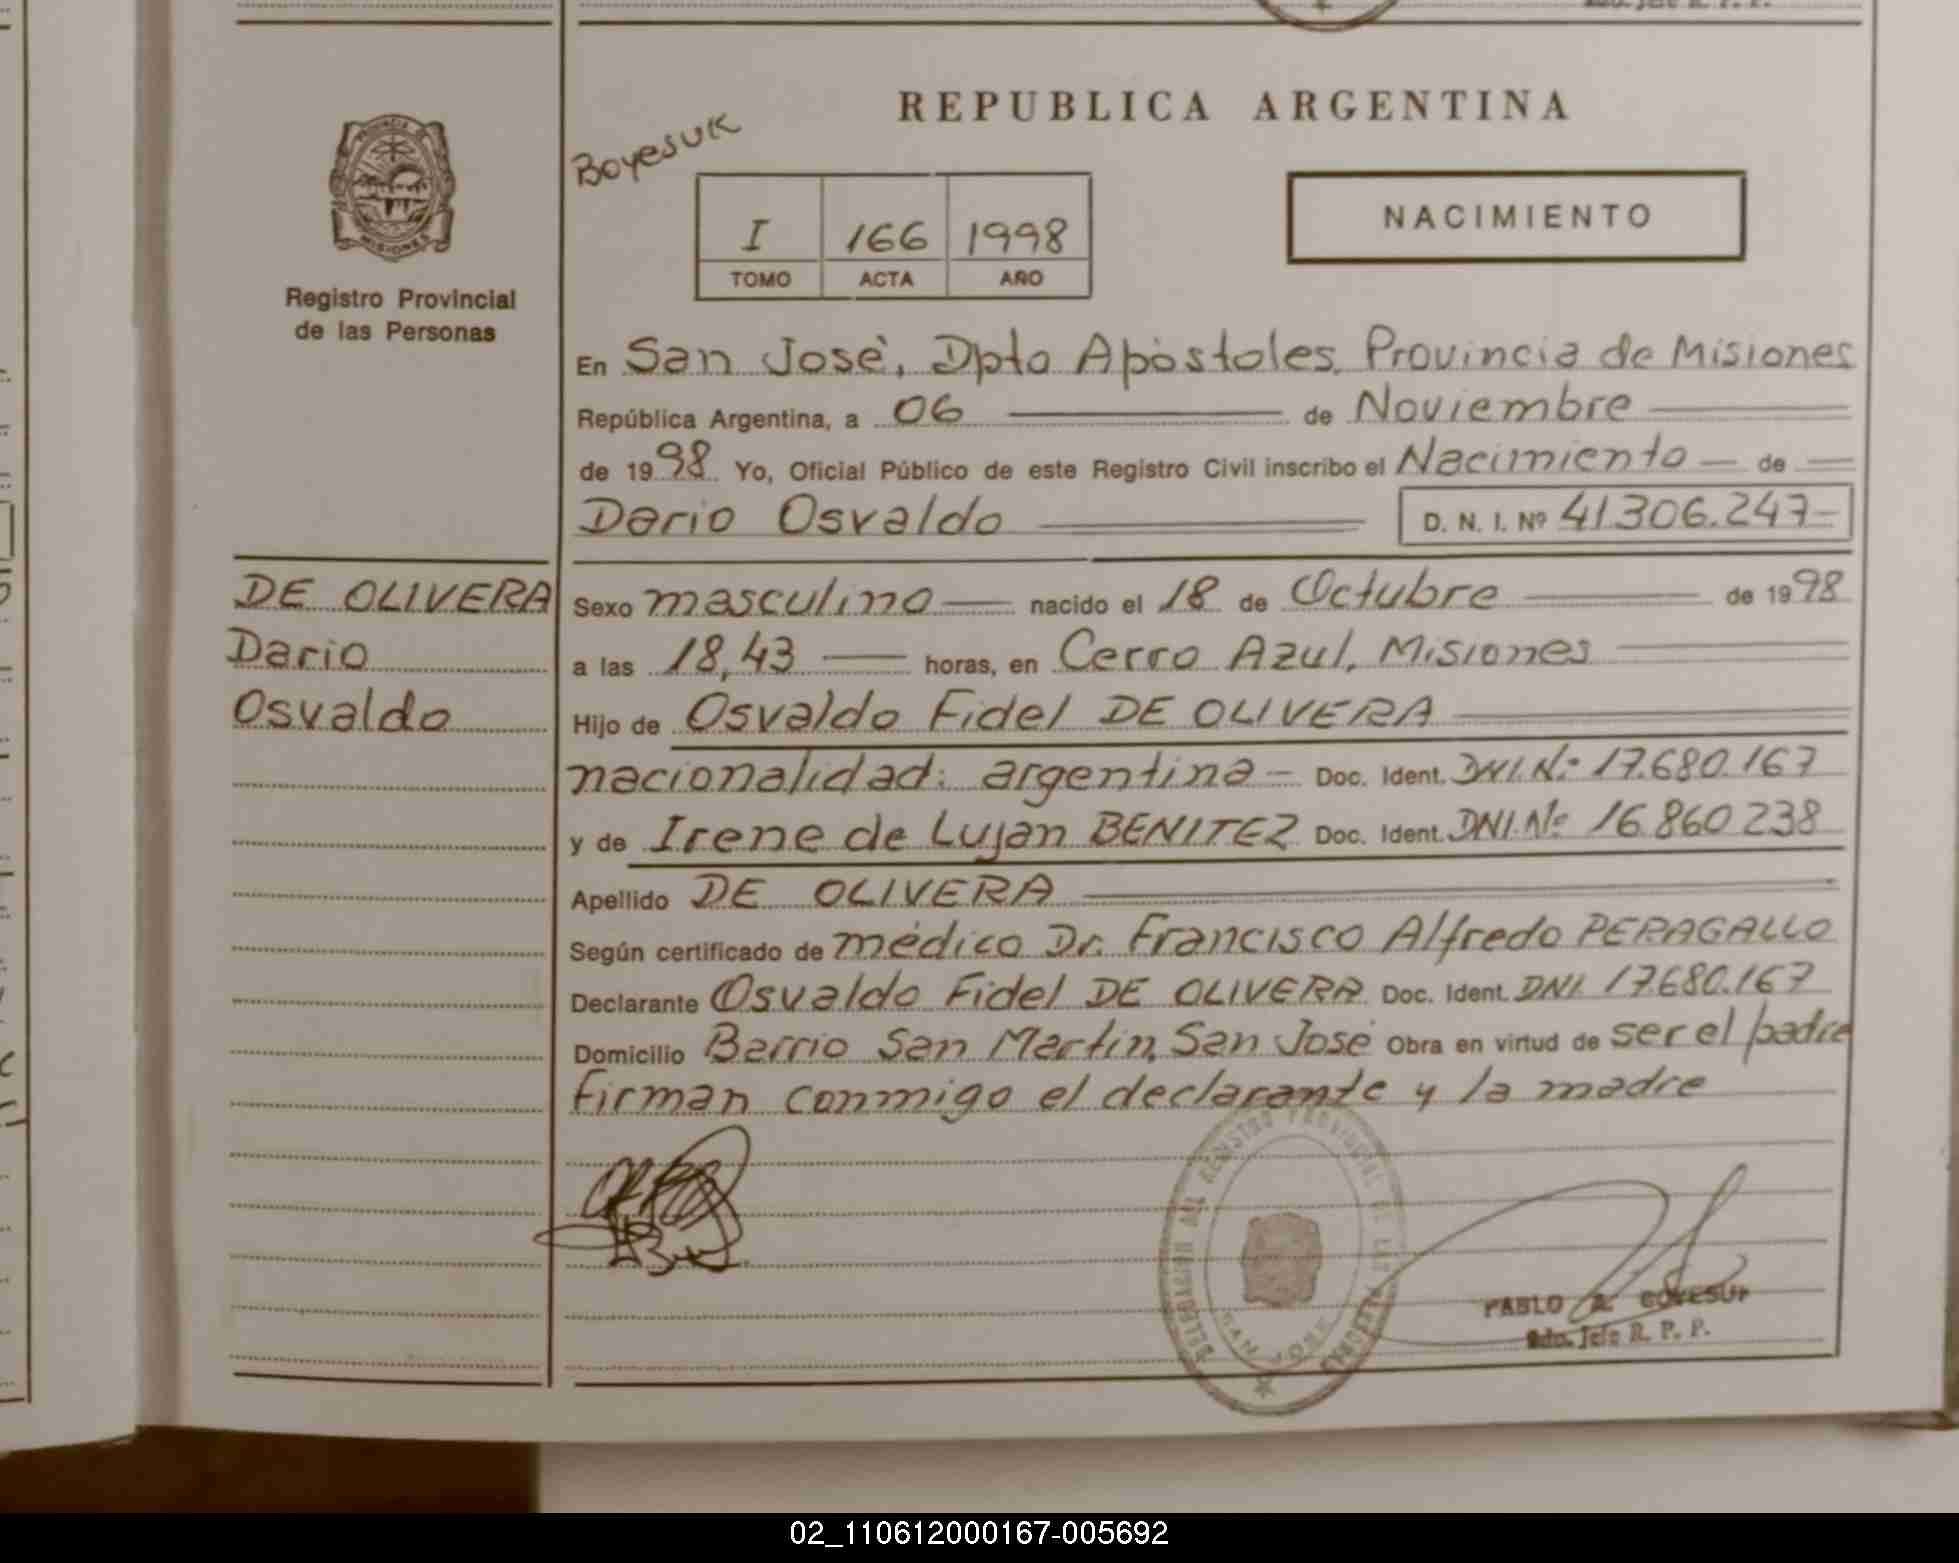 REPUBLICA ARGENTINA
Boyesuk
PROVINCIA DE
MISIONES
Registro Provincial
de las Personas
I 166 1998
TOMO ACTA AÑO
NACIMIENTO
En San José, Dpto Apóstoles, Provincia de Misiones
República Argentina, a 06 de Noviembre
de 1998 Yo, Oficial Público de este Registro Civil inscribo el Nacimiento de
Dario Osvaldo D. N. I. Nº 41.306.247-
DE OLIVERA
Dario
Osvaldo
Sexo masculino nacido el 18 de Octubre de 1998
a las 18,43 horas, en Cerro Azul, Misiones
Hijo de Osvaldo Fidel DE OLIVERA
nacionalidad: argentina - Doc. Ident. DNI.Nº 17.680.167
y de Irene de Lujan BENITEZ Doc. Ident. DNI.Nº 16.860238
Apellido DE OLIVERA
Según certificado de médico Dr. Francisco Alfredo PERAGALLO
Declarante Osvaldo Fidel DE OLIVERA Doc. Ident. DNI. 17.680.167
Domicilio Barrio San Martín, San José Obra en virtud de ser el padre
Firman conmigo el declarante y la madre
DELEGACION DEL REGISTRO PROVINCIAL DE LAS PERSONAS
SAN JOSE
PABLO A.
Jefe R. P. P.
02_110612000167-005692